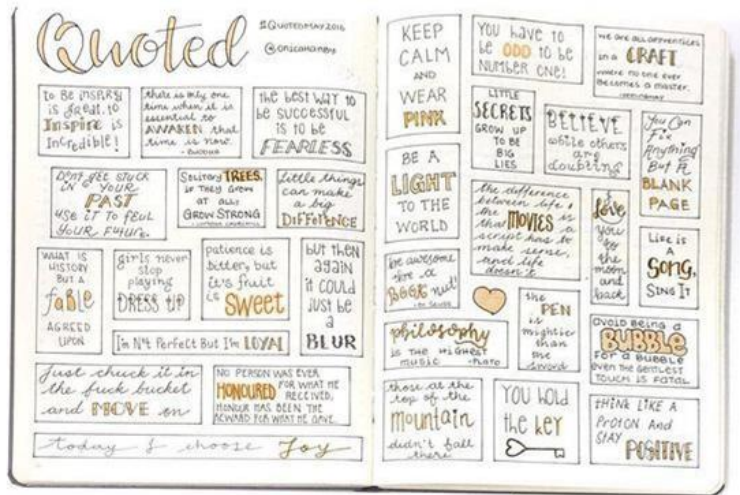 Quoted
#QUOTEDMAY2016
to BE INSPIRED
is great. to
Inspire is
Incredible!
there is only one
time when it is
essential to
AWAKEN. that
time is now.
- BUDDHA
the best way to
be successful
is to be
FEARLESS
Don't get stuck
in YOUR
PAST
USE iT TO fEUL
YOUR FUTURE.
Solitary TREES,
if they grow
at all,
GROW STRONG
little things
can make
a big
DIFFERENCE
WHAT IS
HISTORY
BUT A
fable
AGREED
UPON
girls never
stop
playing
DRESS UP
patience is
bitter, but
it's fruit
is SWEET
but then
again
it could
just be
a
BLUR
I'm N't Perfect But I'm LOYAL
Just chuck it in
the fuck bucket
and MOVE on
NO PERSON WAS EVER
HONOURED FOR WHAT HE
RECEIVED.
HONOUR HAS BEEN THE
REWARD FOR WHAT HE GAVE.
today I choose Joy
KEEP
CALM
AND
WEAR
PINK
YOU have to
be ODD to be
NUMBER ONE!
we are all apprentices
in a CRAFT
where no one ever
becomes a master.
LITTLE
SECRETS
GROW UP
TO BE
BIG
LIES
BELIEVE
while others
are
doubting
You Can
Fix
Anything
But A
BLANK
PAGE
BE A
LIGHT
TO THE
WORLD
the difference
between life &
the MOVIES is
that a
script has to
make sense,
and life
doesn't
I
love
you
to
the
moon
and
back
Life is
A
Song,
SING IT
be awesome
be a
BOOK nut!
- DR SEUSS
the
PEN
is
mightier
than
the
sword
philosophy
IS THE HIGHEST
MUSIC -PLATO
avoid Being a
BUBBLE
For a BUBBLE
EVEN THE GENTLEST
TOUCH IS FATAL
those at the
top of the
mountain
didn't fall
there
YOU hold
the key
tHiNk LIKE A
PrOtON And
StAY
POSITIVE